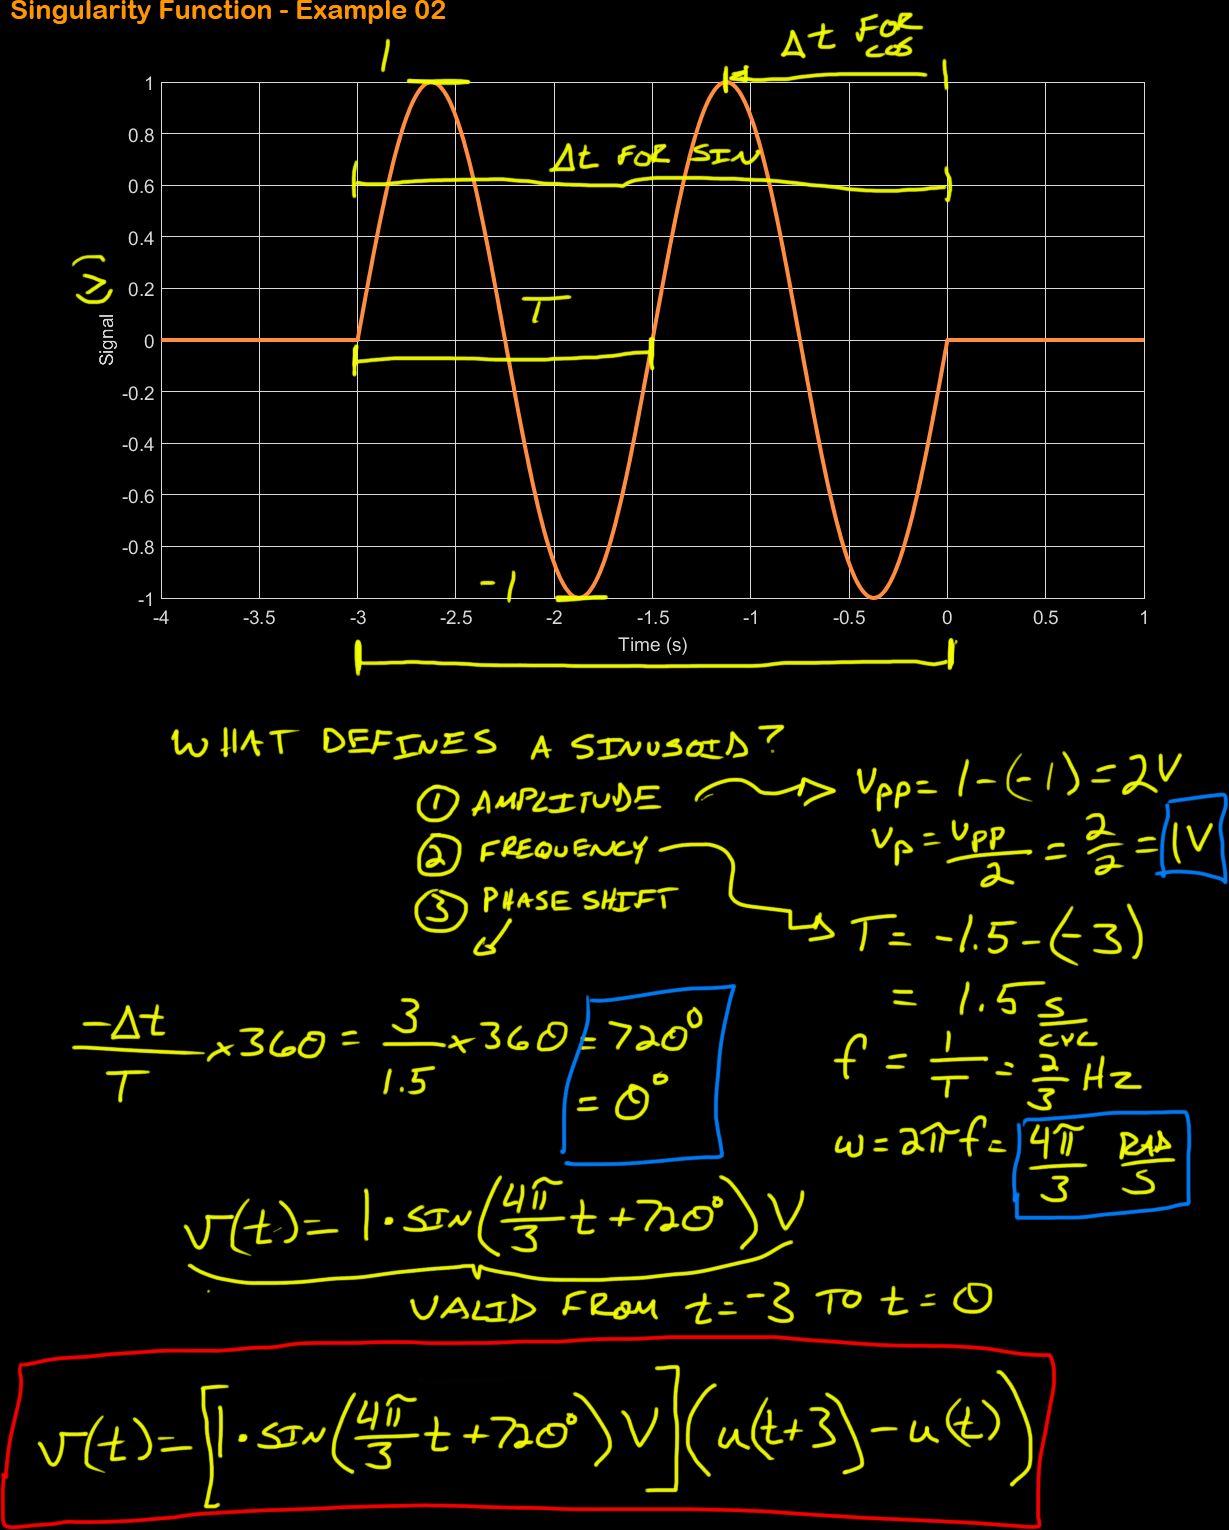 Singularity Function - Example 02
1
Δt FOR COS
Δt FOR SIN
T
-1
(V)
Signal
1
0.8
0.6
0.4
0.2
0
-0.2
-0.4
-0.6
-0.8
-1
-4 -3.5 -3 -2.5 -2 -1.5 -1 -0.5 0 0.5 1
Time (s)
WHAT DEFINES A SINUSOID?
① AMPLITUDE
② FREQUENCY
③ PHASE SHIFT
Vpp = 1-(-1) = 2V
Vp = Vpp/2 = 2/2 = 1V
T = -1.5-(-3)
= 1.5 S/CYC
f = 1/T = 2/3 Hz
ω = 2πf = 4π/3 RAD/S
-Δt/T ×360 = 3/1.5 ×360 = 720°
= 0°
v(t) = 1·SIN(4π/3 t + 720°) V
VALID FROM t = -3 TO t = 0
v(t) = [1·SIN(4π/3 t + 720°) V](u(t+3) - u(t))